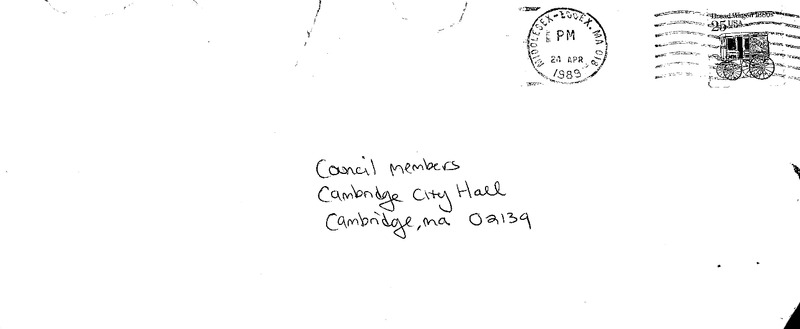 MIDDLESEX-ESSEX, MA 018
PM
24 APR
1989
Bread Wagon 1880s
25 USA
Council members
Cambridge City Hall
Cambridge, ma 02139